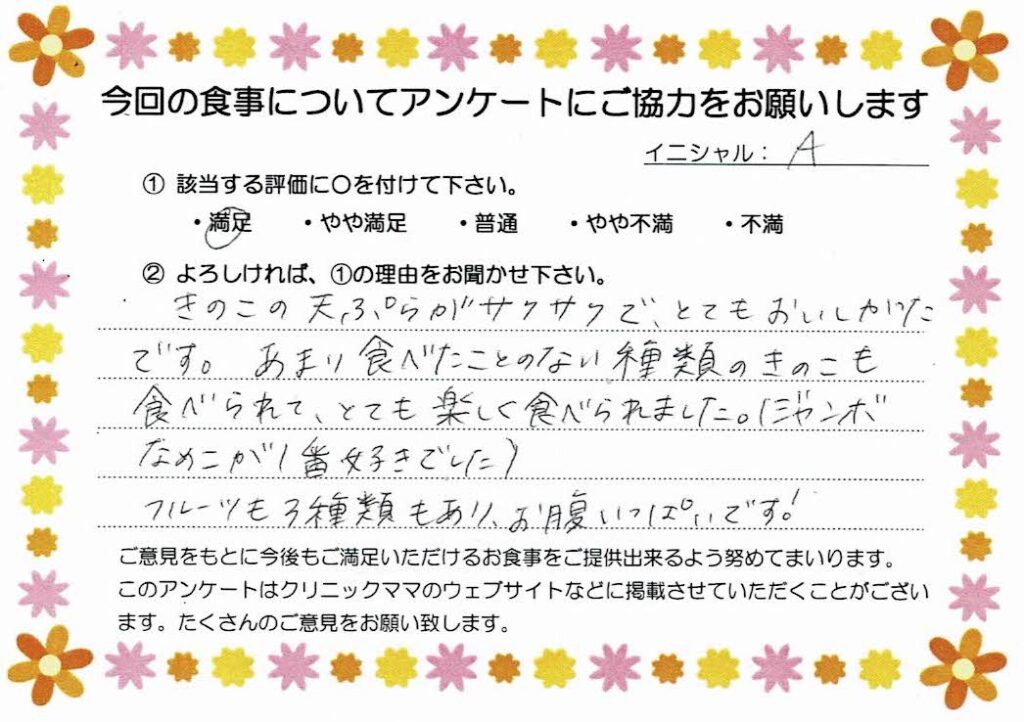 今回の食事についてアンケートにご協力をお願いします
イニシャル： A
① 該当する評価に〇を付けて下さい。
・満足 ・やや満足 ・普通 ・やや不満 ・不満
② よろしければ、①の理由をお聞かせ下さい。
きのこの天ぷらがサクサクで、とてもおいしかった
です。 あまり食べたことのない種類のきのこも
食べられて、とても楽しく食べられました。(ジャンボ
なめこが1番好きでした)
フルーツも3種類もあり、お腹いっぱいです!
ご意見をもとに今後もご満足いただけるお食事をご提供出来るよう努めてまいります。
このアンケートはクリニックママのウェブサイトなどに掲載させていただくことがござい
ます。たくさんのご意見をお願い致します。